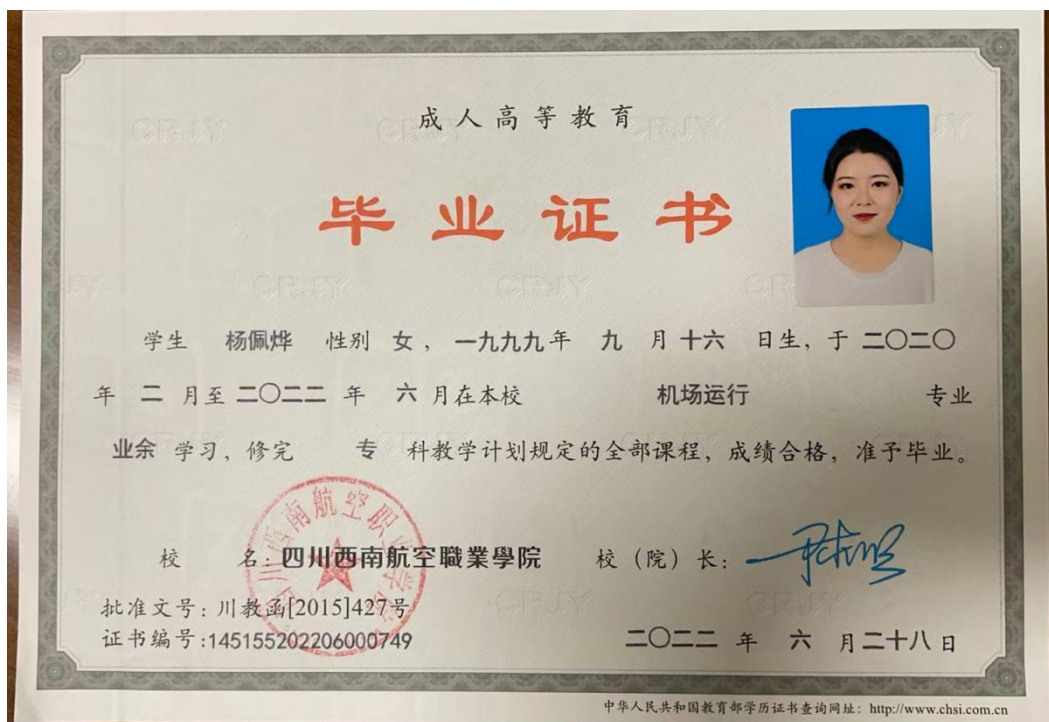 成人高等教育
毕业证书
学生 杨佩烨 性别 女，一九九九年 九 月 十六 日生，于 二〇二〇
年 二 月至 二〇二二 年 六 月在本校 机场运行 专业
业余 学习，修完 专 科教学计划规定的全部课程，成绩合格，准予毕业。
校 名：四川西南航空職業學院 校（院）长：
批准文号：川教函[2015]427号
证书编号：145155202206000749
二〇二二 年 六 月二十八日
中华人民共和国教育部学历证书查询网址：http://www.chsi.com.cn
四川西南航空职业学院
CRJY